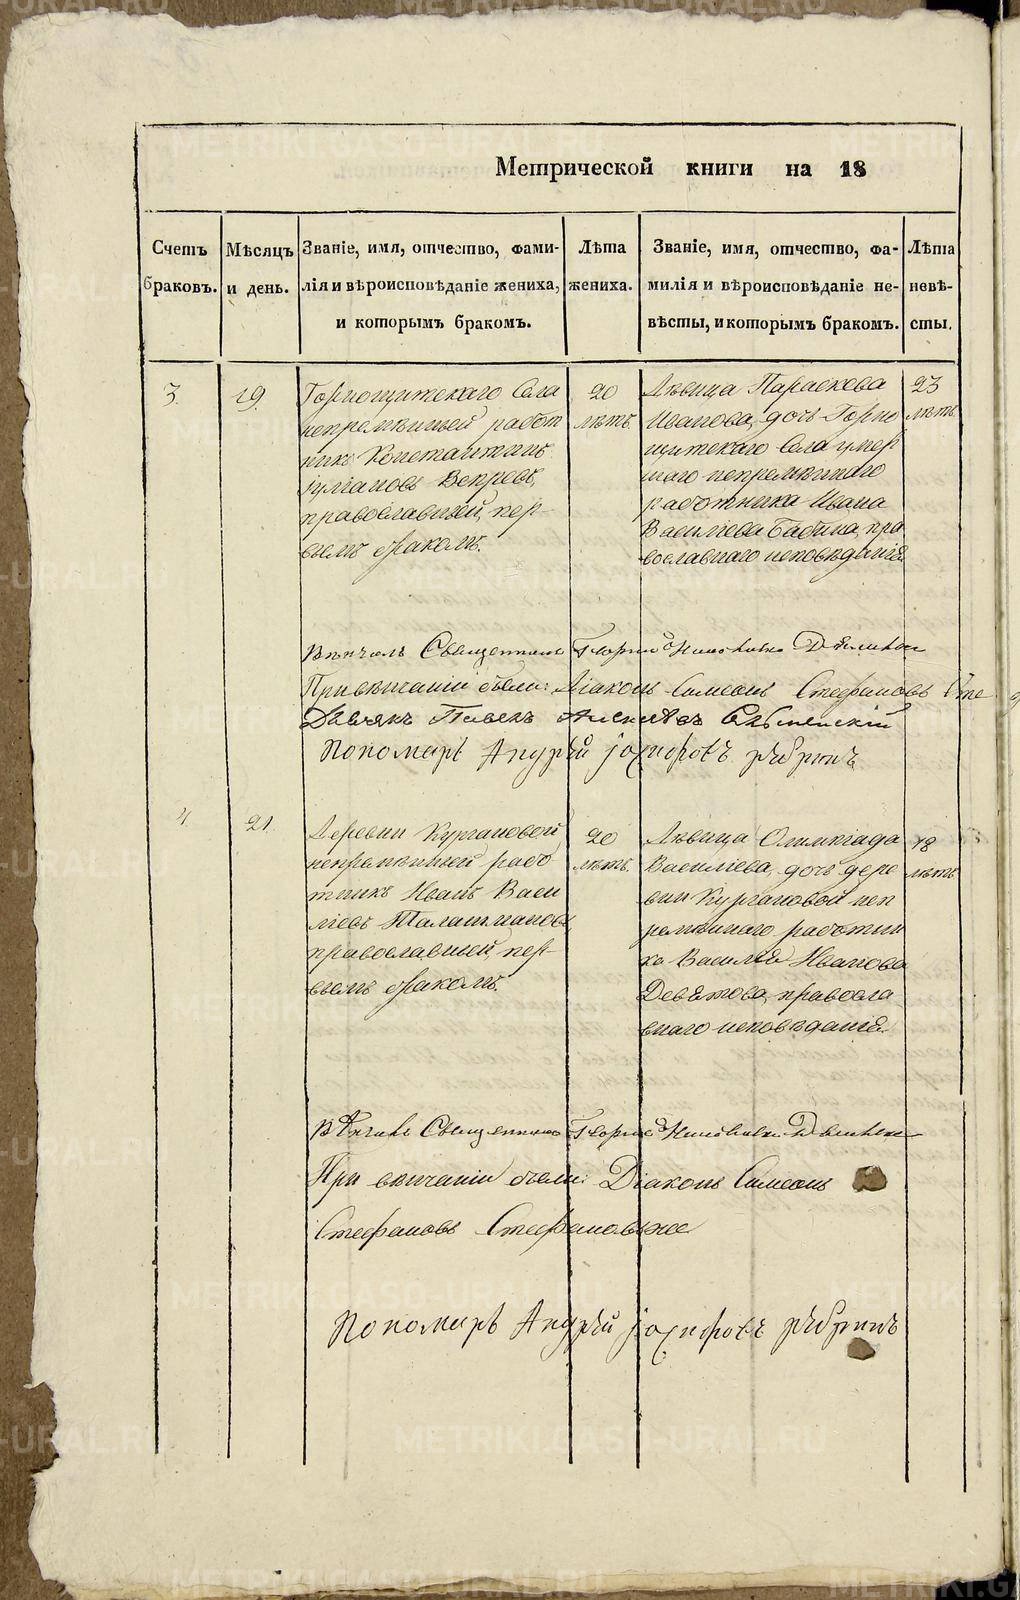 Метрической книги на 18
Счетъ браковъ.
Мѣсяцъ и день.
Званіе, имя, отчество, фами-
лія и вѣроисповѣданіе жениха,
и которымъ бракомъ.
Лѣта
жениха.
Званіе, имя, отчество, фа-
милія и вѣроисповѣданіе не-
вѣсты, и которымъ бракомъ.
Лѣта
невѣ-
сты.
3.
19.
Горнощитскаго Села
непремѣнный работ
никъ Константинъ
Вепревъ,
православный, пер-
вымъ бракомъ.
20
лѣтъ.
Дѣвица Параскева
Иванова, дочь Горно
щитскаго Села умер
шаго непремѣннаго
работника Ивана
Василіева Бабина, пра
вославнаго исповѣданія
23
лѣтъ.
Вѣнчалъ Священникъ Георгій
При вѣнчаніи были: Діаконъ Симеонъ Стефановъ Сте
Дьячекъ Павелъ
Пономарь Андрѣй
4.
21.
Деревни Кургановой
непремѣнный рабо
тникъ Иванъ Васи
ліевъ Талашмановъ
православный, пер-
вымъ бракомъ.
20
лѣтъ.
Дѣвица Олимпіада
Василіева, дочь дере
вни Кургановой неп
ремѣннаго работни
ка Василія Иванова
Девятова, правосла
внаго исповѣданія.
18
лѣтъ.
Священникъ Георгій
При вѣнчаніи были: Діаконъ Симеонъ
Стефановъ
Пономарь Андрѣй
METRIKI.GASO-URAL.RU